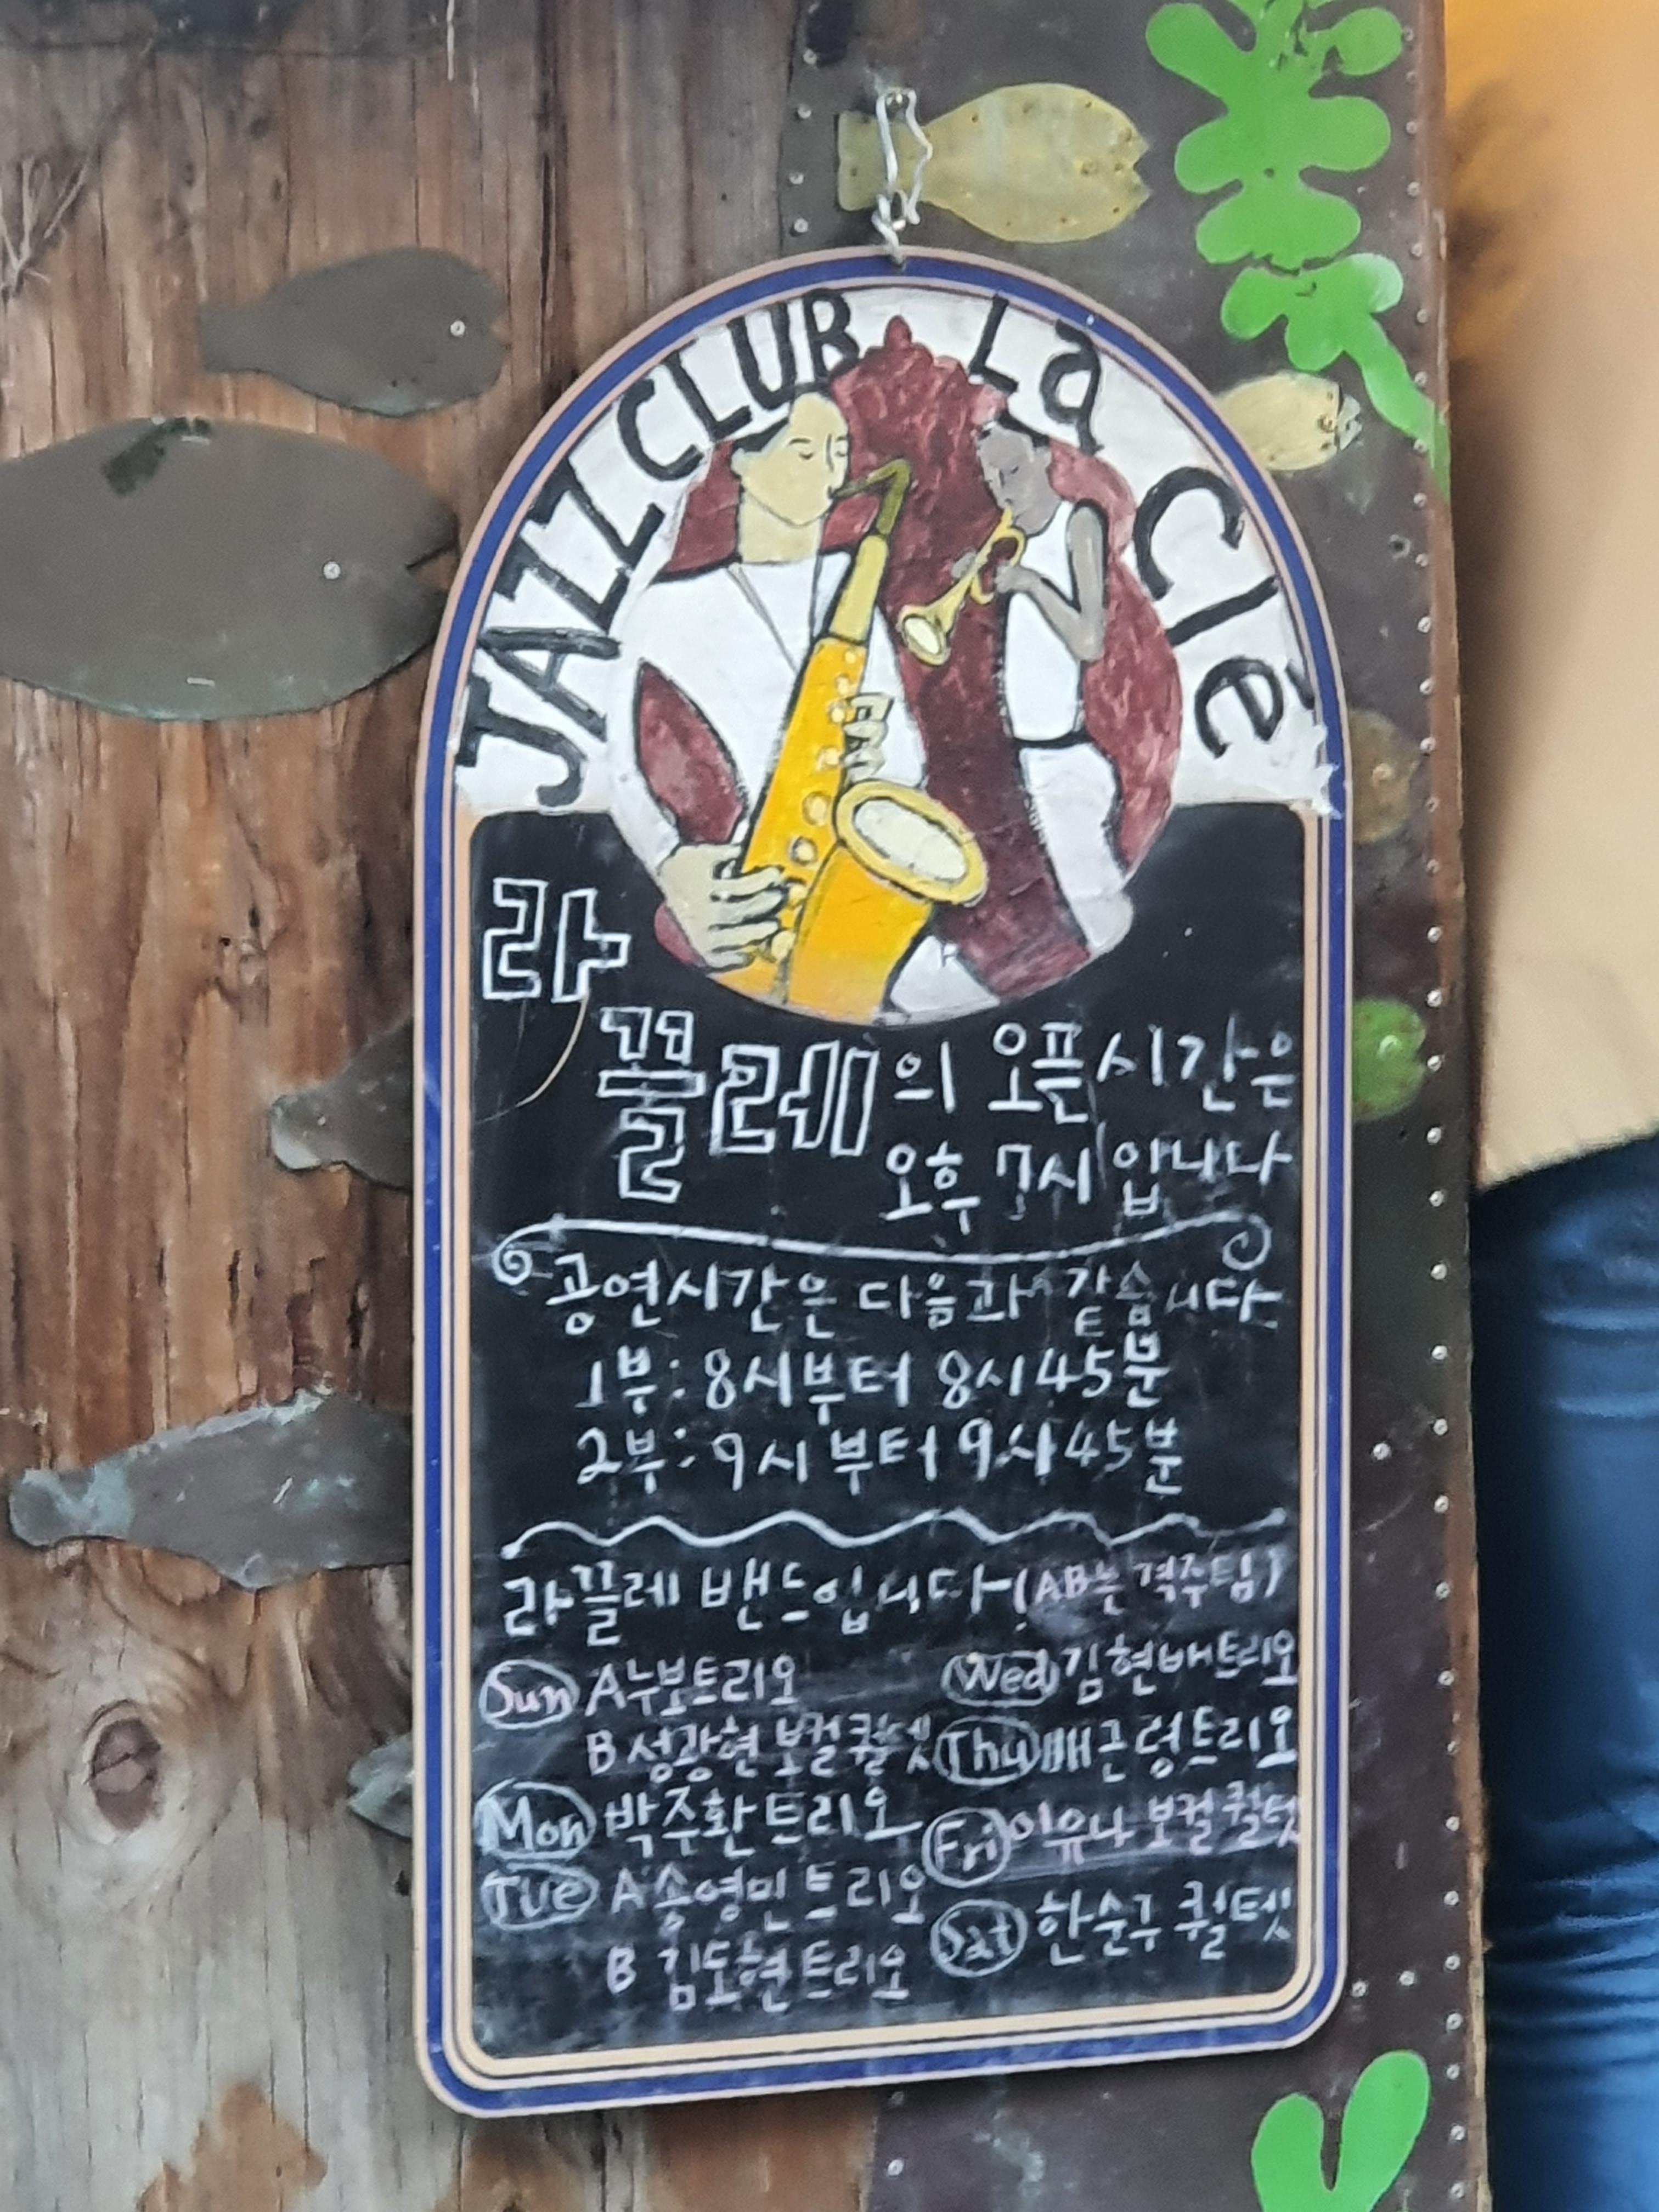 JAZZ CLUB La Clé
라
끌레의 오픈시간은
오후 7시입니다
공연시간은 다음과 같습니다
1부: 8시부터 8시45분
2부: 9시부터 9시45분
라끌레 밴드입니다(AB는 격주팀)
Sun A누보트리오
B 성광현 보컬퀄텟
Mon 박주환트리오
Tue A 송영민트리오
B 김도현트리오
Wed 김현배트리오
Thu 배근령트리오
Fri 이유나 보컬퀄텟
Sat 한순구 퀄텟